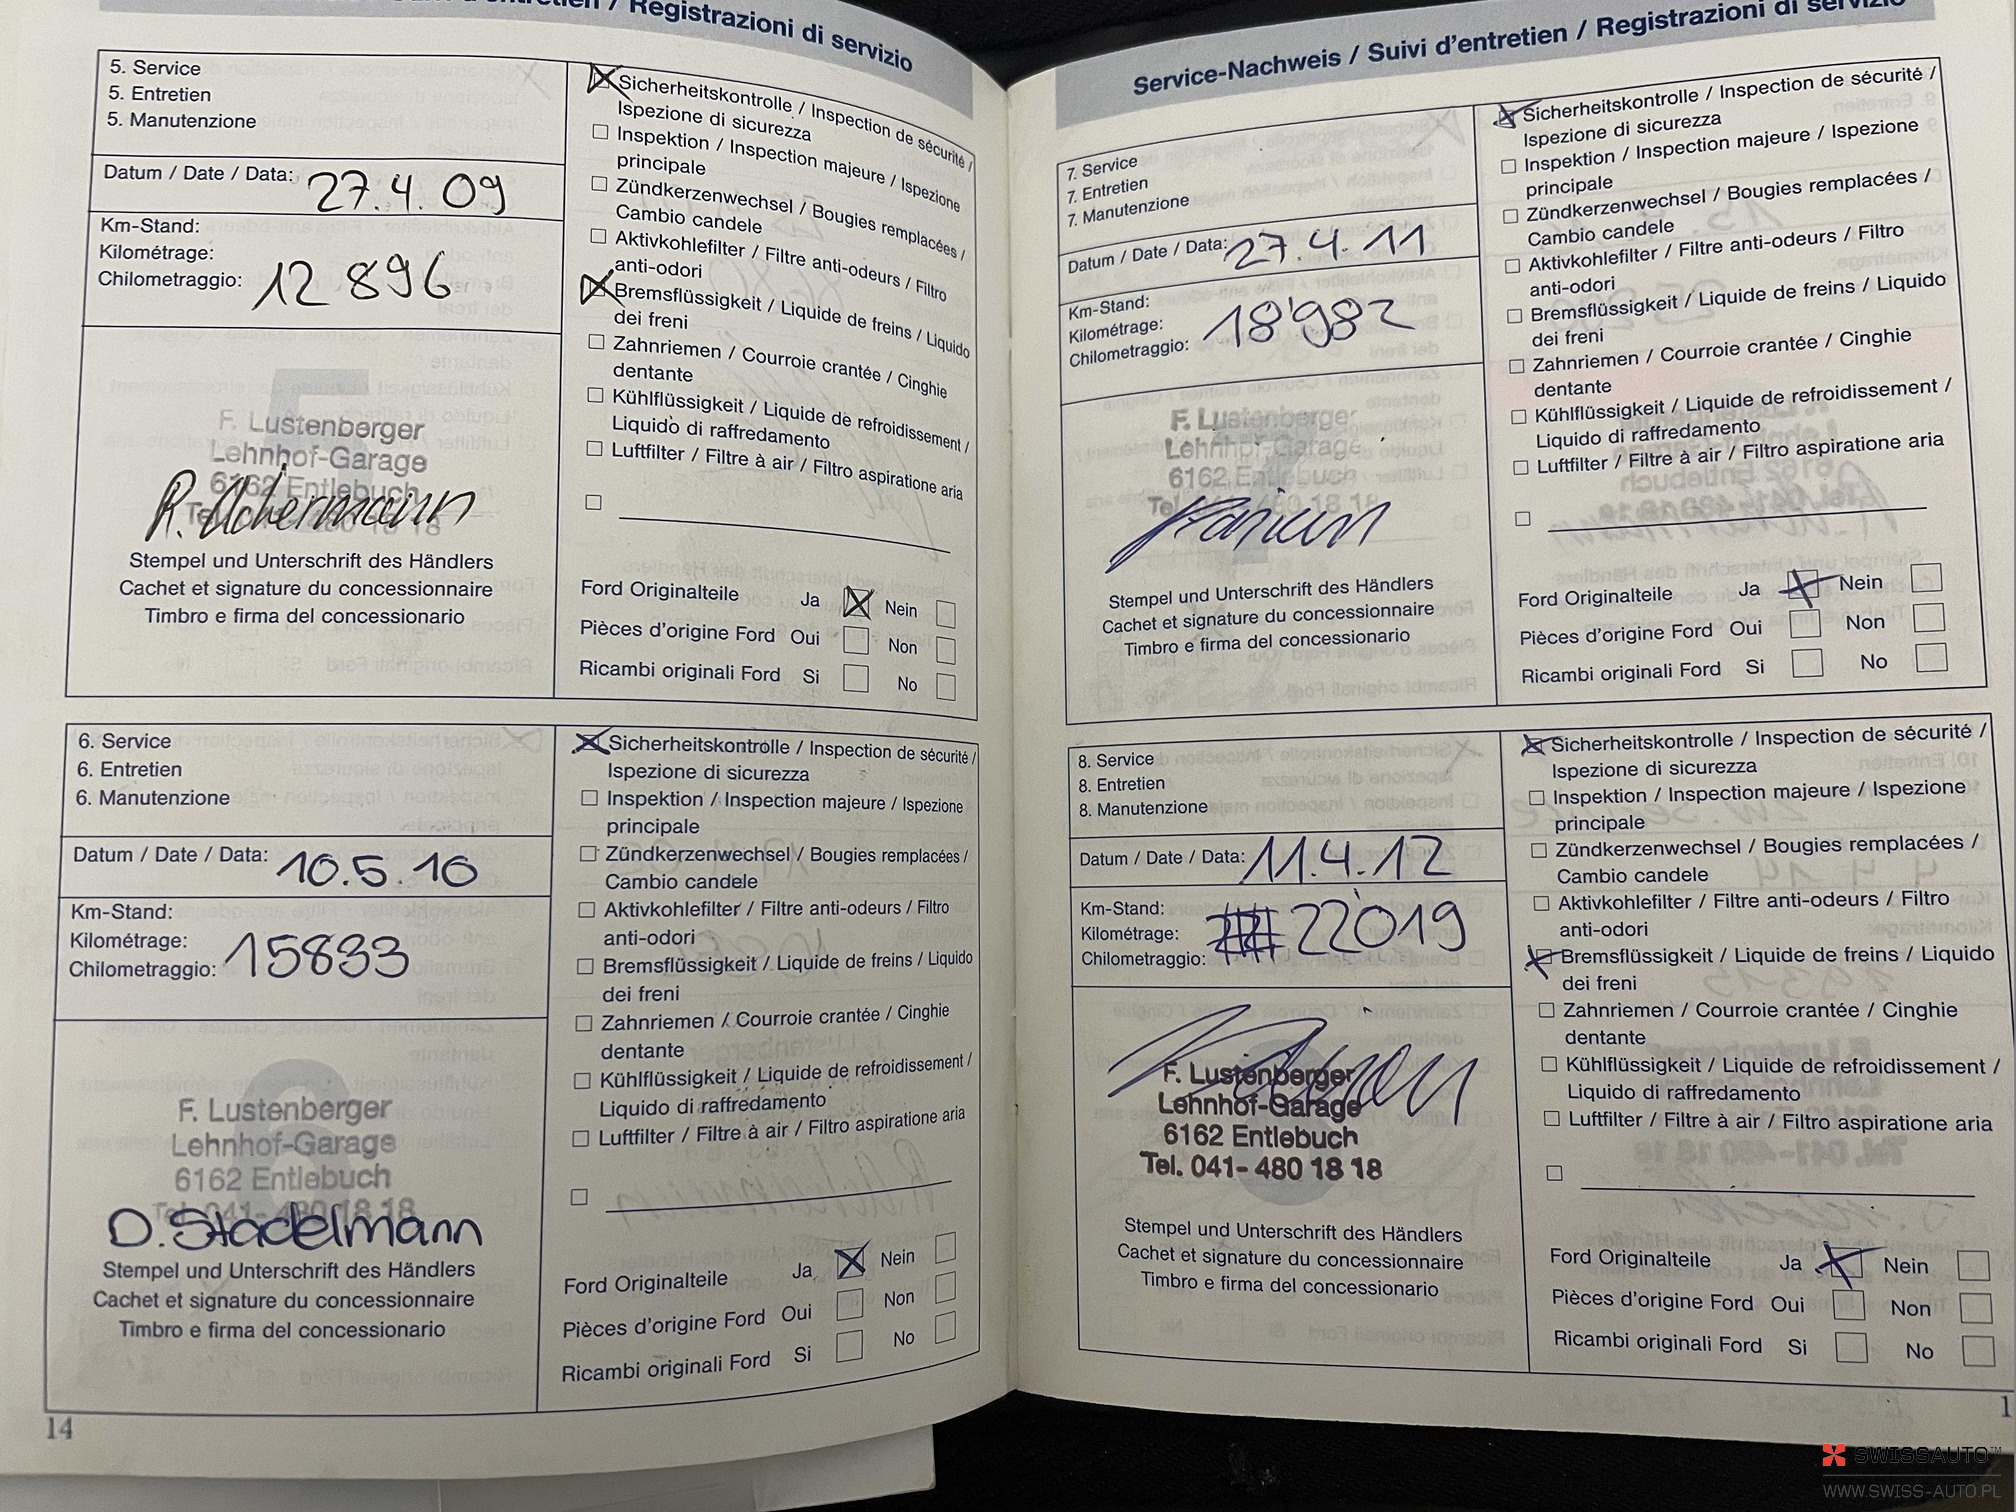 d'entretien / Registrazioni di servizio
5. Service
5. Entretien
5. Manutenzione
Datum / Date / Data: 27.4.09
Km-Stand:
Kilométrage:
Chilometraggio: 12896
F. Lustenberger
Lehnhof-Garage
6162 Entlebuch
Tel. 041-480 18 18
R. Achermann
Stempel und Unterschrift des Händlers
Cachet et signature du concessionnaire
Timbro e firma del concessionario
Sicherheitskontrolle / Inspection de sécurité /
Ispezione di sicurezza
Inspektion / Inspection majeure / Ispezione
principale
Zündkerzenwechsel / Bougies remplacées /
Cambio candele
Aktivkohlefilter / Filtre anti-odeurs / Filtro
anti-odori
Bremsflüssigkeit / Liquide de freins / Liquido
dei freni
Zahnriemen / Courroie crantée / Cinghie
dentante
Kühlflüssigkeit / Liquide de refroidissement /
Liquido di raffredamento
Luftfilter / Filtre à air / Filtro aspiratione aria
Ford Originalteile Ja Nein
Pièces d'origine Ford Oui Non
Ricambi originali Ford Si No
6. Service
6. Entretien
6. Manutenzione
Datum / Date / Data: 10.5.10
Km-Stand:
Kilométrage:
Chilometraggio: 15833
F. Lustenberger
Lehnhof-Garage
6162 Entlebuch
Tel. 041-480 18 18
D. Stadelmann
Stempel und Unterschrift des Händlers
Cachet et signature du concessionnaire
Timbro e firma del concessionario
Sicherheitskontrolle / Inspection de sécurité /
Ispezione di sicurezza
Inspektion / Inspection majeure / Ispezione
principale
Zündkerzenwechsel / Bougies remplacées /
Cambio candele
Aktivkohlefilter / Filtre anti-odeurs / Filtro
anti-odori
Bremsflüssigkeit / Liquide de freins / Liquido
dei freni
Zahnriemen / Courroie crantée / Cinghie
dentante
Kühlflüssigkeit / Liquide de refroidissement /
Liquido di raffredamento
Luftfilter / Filtre à air / Filtro aspiratione aria
Ford Originalteile Ja Nein
Pièces d'origine Ford Oui Non
Ricambi originali Ford Si No
14
Service-Nachweis / Suivi d'entretien / Registrazioni di servizio
7. Service
7. Entretien
7. Manutenzione
Datum / Date / Data: 27.4.11
Km-Stand:
Kilométrage:
Chilometraggio: 18'982
F. Lustenberger
Lehnhof-Garage
6162 Entlebuch
Tel. 041-480 18 18
Stempel und Unterschrift des Händlers
Cachet et signature du concessionnaire
Timbro e firma del concessionario
Sicherheitskontrolle / Inspection de sécurité /
Ispezione di sicurezza
Inspektion / Inspection majeure / Ispezione
principale
Zündkerzenwechsel / Bougies remplacées /
Cambio candele
Aktivkohlefilter / Filtre anti-odeurs / Filtro
anti-odori
Bremsflüssigkeit / Liquide de freins / Liquido
dei freni
Zahnriemen / Courroie crantée / Cinghie
dentante
Kühlflüssigkeit / Liquide de refroidissement /
Liquido di raffredamento
Luftfilter / Filtre à air / Filtro aspiratione aria
Ford Originalteile Ja Nein
Pièces d'origine Ford Oui Non
Ricambi originali Ford Si No
8. Service
8. Entretien
8. Manutenzione
Datum / Date / Data: 11.4.12
Km-Stand:
Kilométrage:
Chilometraggio: 22'019
F. Lustenberger
Lehnhof-Garage
6162 Entlebuch
Tel. 041-480 18 18
Stempel und Unterschrift des Händlers
Cachet et signature du concessionnaire
Timbro e firma del concessionario
Sicherheitskontrolle / Inspection de sécurité /
Ispezione di sicurezza
Inspektion / Inspection majeure / Ispezione
principale
Zündkerzenwechsel / Bougies remplacées /
Cambio candele
Aktivkohlefilter / Filtre anti-odeurs / Filtro
anti-odori
Bremsflüssigkeit / Liquide de freins / Liquido
dei freni
Zahnriemen / Courroie crantée / Cinghie
dentante
Kühlflüssigkeit / Liquide de refroidissement /
Liquido di raffredamento
Luftfilter / Filtre à air / Filtro aspiratione aria
Ford Originalteile Ja Nein
Pièces d'origine Ford Oui Non
Ricambi originali Ford Si No
1
SWISSAUTO™
WWW.SWISS-AUTO.PL